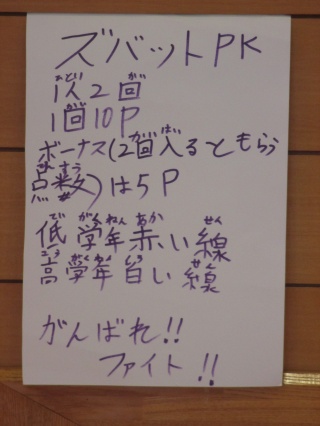 ズバットPK
1人2回
1回10P
ボーナス(2回入るともらう
点数)は5P
低学年赤い線
高学年白い線
がんばれ!!
ファイト!!